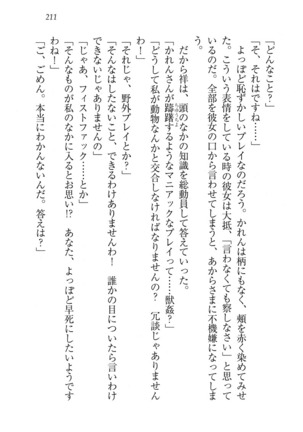 211
「どんなこと？」
「そ、それはですね……」
よっぽど恥ずかしいプレイなのだろう。かれんは柄にもなく、頬を赤く染めてみせ
た。こういう表情をしている時の彼女は大抵、「言わなくても察しなさい」と思って
いるのだ。全部を彼女の口から言わせてしまうと、あからさまに不機嫌になってしま
う。
だから祥は、頭のなかの知識を総動員して答えていった。
「かれんさんが躊躇するようなマニアックなプレイって……獣姦？」
「どうして私が動物なんかと交合しなければなりませんの？　冗談じゃありません
わ！」
「それじゃ、野外プレイとか？」
「そんなはしたないこと、できるわけありませんわ！　誰かの目についたら言いわけ
できないじゃありませんの」
「じゃあ、フィストファック……とか」
「そんなものが私のなかに入るとお思い!?　あなた、よっぽど早死にしたいようです
わね！」
「ご、ごめん。本当にわかんないんだ。答えは？」